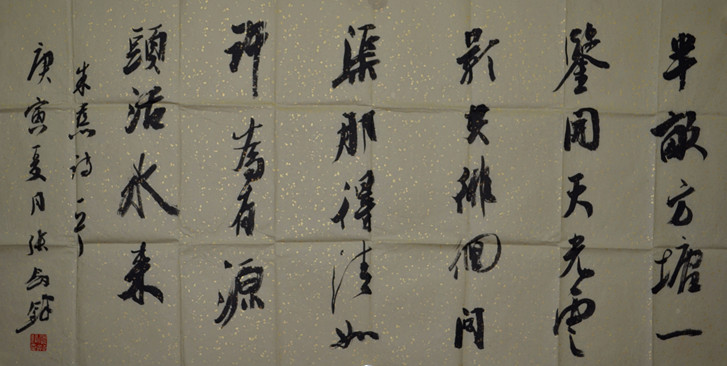 半畝方塘一
鑒開天光雲
影共徘徊問
渠那得清如
許為有源
頭活水來
朱熹詩一首
庚寅夏月張